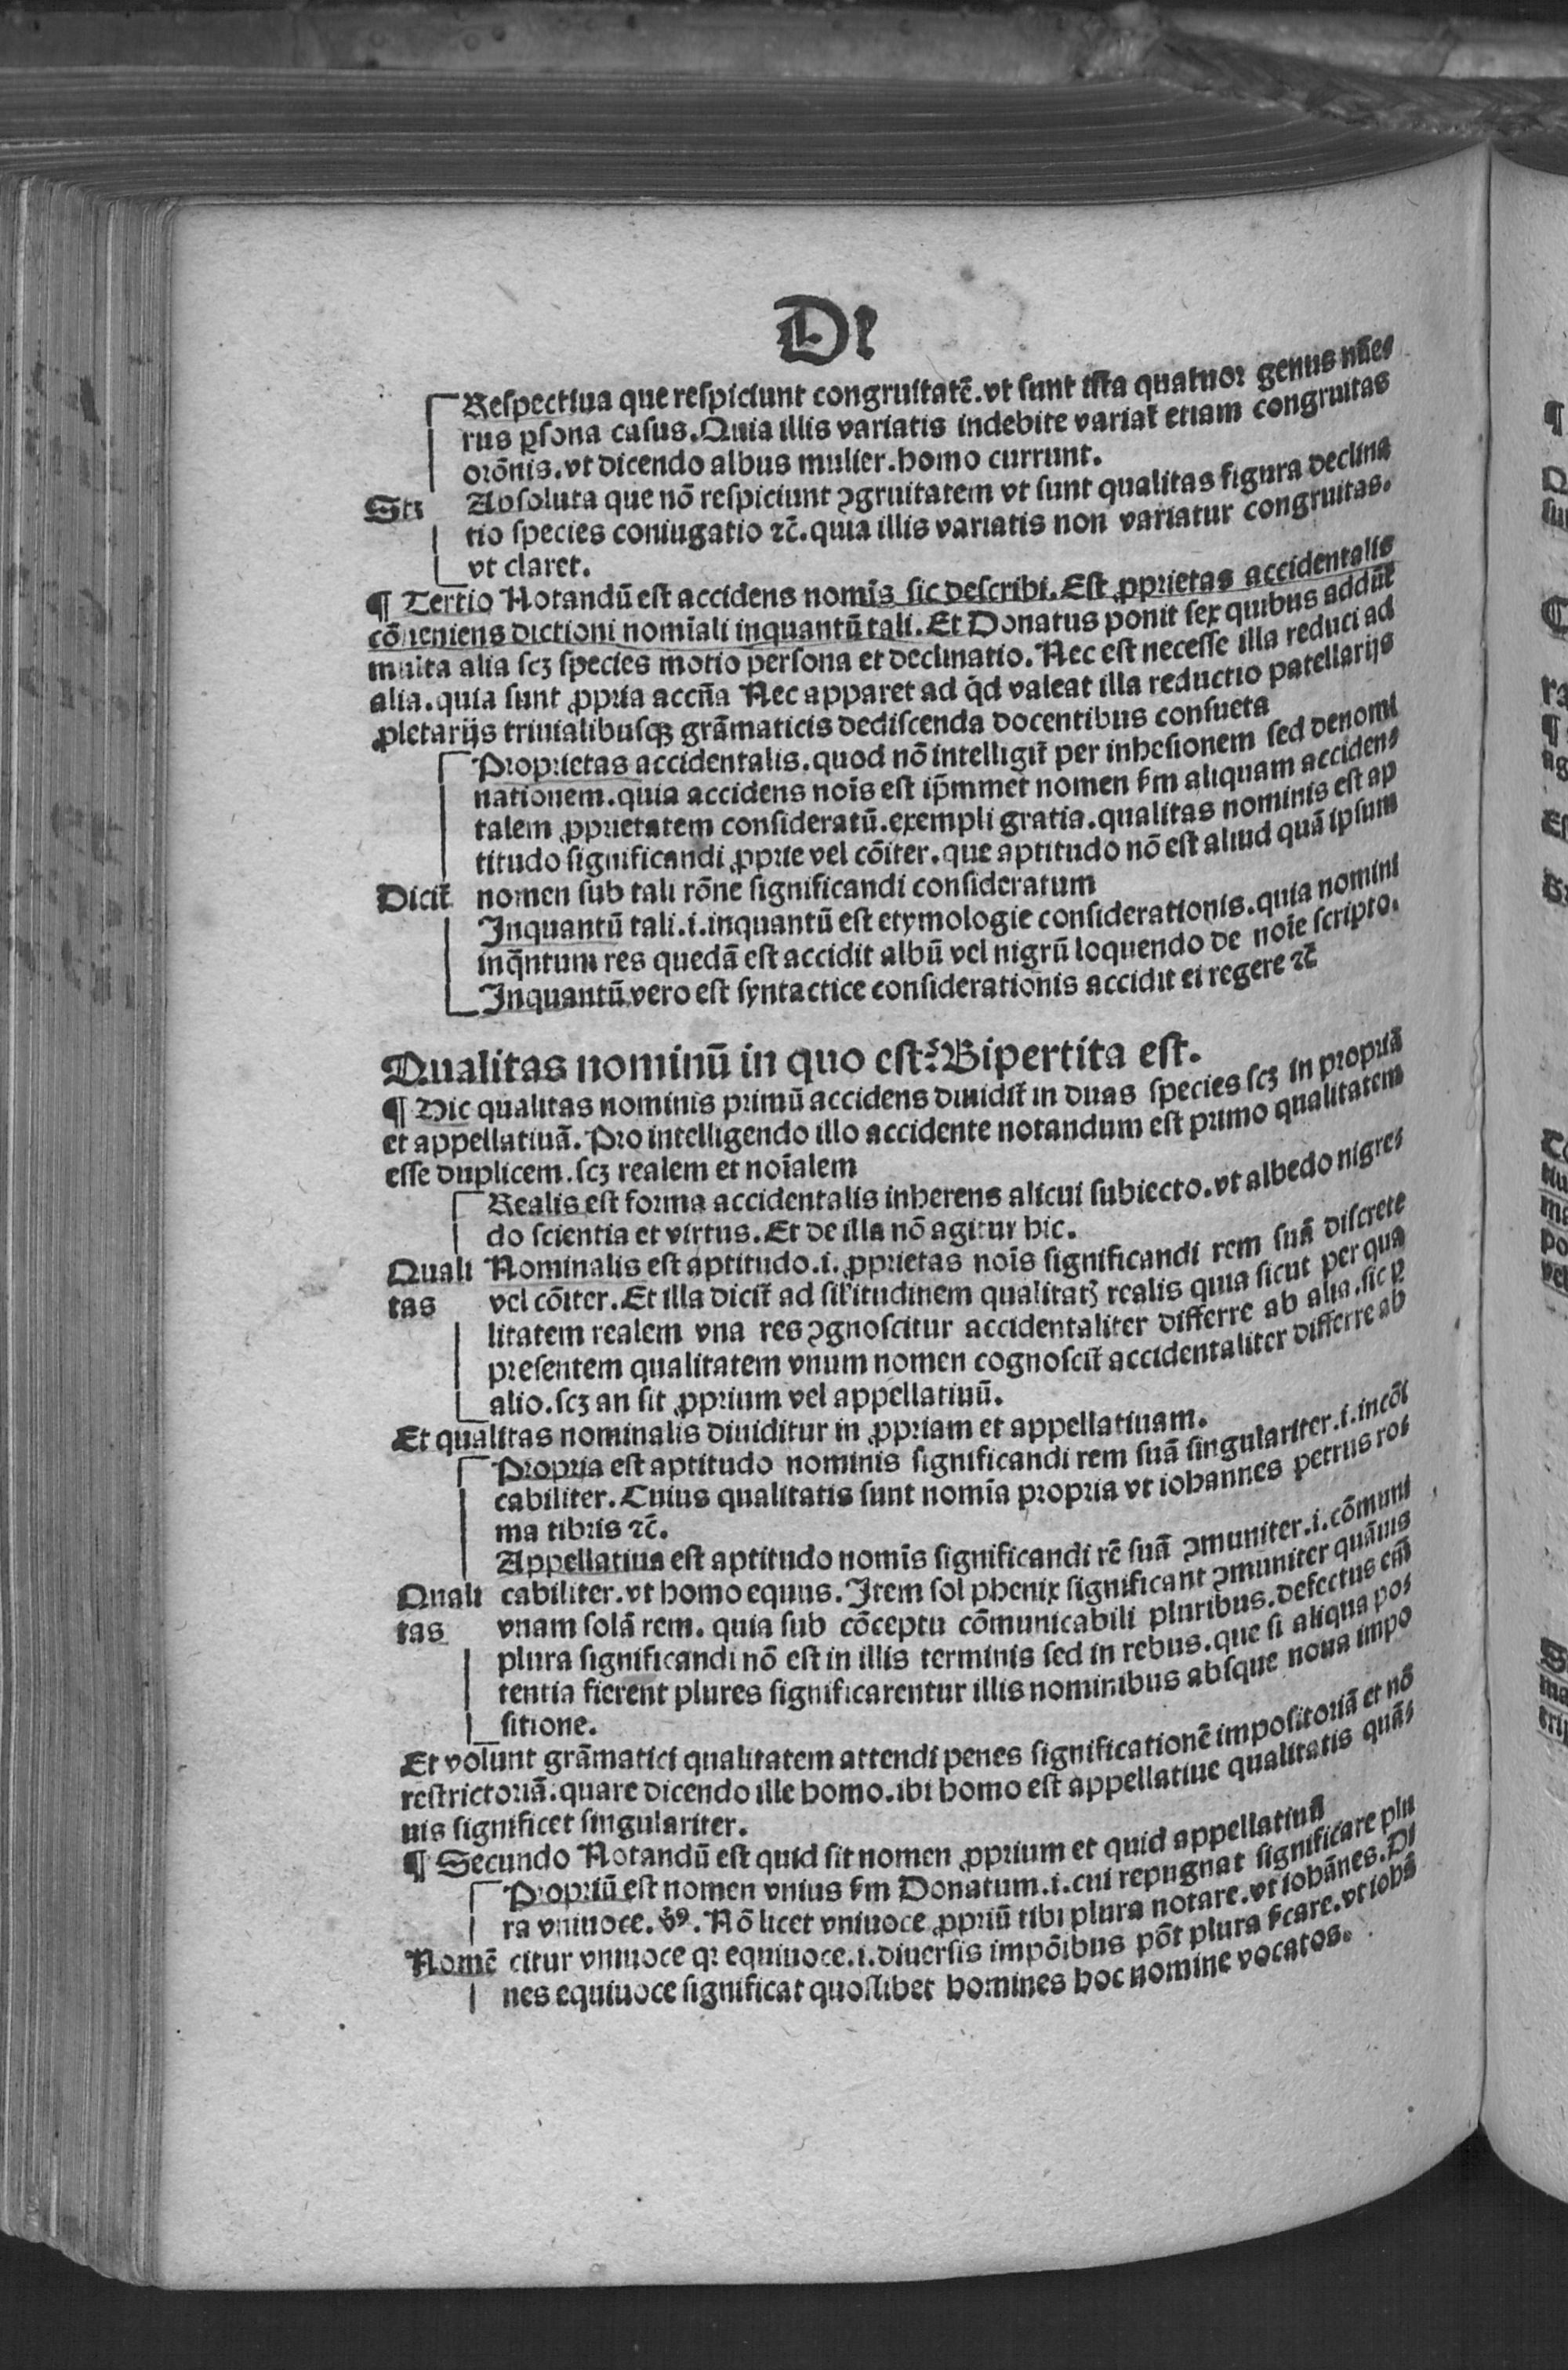 De
Respectiua que respiciunt congruitatē.vt sunt ista quatuor genus nūe⸗
rus ꝑsona casus.Quia illis variatis indebite variat̄ etiam congruitas
orōnis.vt dicendo albus mulier.homo currunt.
Absoluta que nō respiciunt ꝯgruitatem vt sunt qualitas figura declina
tio species coniugatio ⁊c̄.quia illis variatis non variatur congruitas.
vt claret.
¶ Tertio Notandū est accidens nomīs sic describi.Est ꝓprietas accidentalis
cōueniens dictioni nomīali inquantū tali.Et Donatus ponit sex quibus addūt
multa alia scꝫ species motio persona et declinatio.Nec est necesse illa reduci ad
alia.quia sunt ꝓpria accn̄a Nec apparet ad qd̄ valeat illa reductio patellarijs
ꝓletarijs triuialibusqꝫ grāmaticis dediscenda docentibus consueta
Proprietas accidentalis.quod nō intelligit̄ per inhesionem sed denomi
nationem.quia accidens noīs est ip̄mmet nomen ẜm aliquam acciden⸗
talem ꝓprietatem consideratū.exempli gratia.qualitas nominis est ap
titudo significandi ꝓprie vel cōiter.que aptitudo nō est aliud quā ipsum
Dicit̄ nomen sub tali rōne significandi consideratum
Inquantū tali.i.inquantū est etymologie considerationis.quia nomini
inqn̄tum res quedā est accidit albū vel nigrū loquendo de noīe scripto.
Inquantū vero est syntactice considerationis accidit ei regere ⁊c̄
Qualitas nominū in quo est? Bipertita est.
¶ Hic qualitas nominis primū accidens diuidit̄ in duas species scꝫ in propriā
et appellatiuā.Pro intelligendo illo accidente notandum est primo qualitatem
esse duplicem.scꝫ realem et noīalem
Realis est forma accidentalis inherens alicui subiecto.vt albedo nigre⸗
do scientia et virtus.Et de illa nō agitur hic.
Quali Nominalis est aptitudo.i.ꝓprietas noīs significandi rem suā discrete
tas vel cōiter.Et illa dicit̄ ad sil'itudinem qualitatꝭ realis quia sicut per qua
litatem realem vna res ꝯgnoscitur accidentaliter differre ab alia.sic ꝑ
presentem qualitatem vnum nomen cognoscit̄ accidentaliter differre ab
alio.scꝫ an sit ꝓprium vel appellatiuū.
Et qualitas nominalis diuiditur in ꝓpriam et appellatiuam.
Propria est aptitudo nominis significandi rem suā singulariter.i.incōi
cabiliter.Cuius qualitatis sunt nomīa propria vt iohannes petrus ro⸗
ma tibris ⁊c̄.
Appellatiua est aptitudo nomīs significandi rē suā ꝯmuniter.i.cōmuni
Quali cabiliter.vt homo equus.Item sol phenix significant ꝯmuniter quāuis
tas vnam solā rem.quia sub cōceptu cōmunicabili pluribus.defectus em̄
plura significandi nō est in illis terminis sed in rebus.que si aliqua po⸗
tentia fierent plures significarentur illis nominibus absque noua impo
sitione.
Et volunt grāmatici qualitatem attendi penes significationē impositoriā et nō
restrictoriā.quare dicendo ille homo.ibi homo est appellatiue qualitatis quā⸗
uis significet singulariter.
¶ Secundo Notandū est quid sit nomen ꝓprium et quid appellatiuū
Propriū est nomen vnius ẜm Donatum.i.cui repugnat significare plu
ra vniuoce.Nō licet vniuoce ꝓpriū tibi plura notare.vt iohānes.Di
Nomē citur vniuoce qr equiuoce.i.diuersis impōibus pōt plura ẜcare.vt iohā
nes equiuoce significat quoslibet homines hoc nomine vocatos.